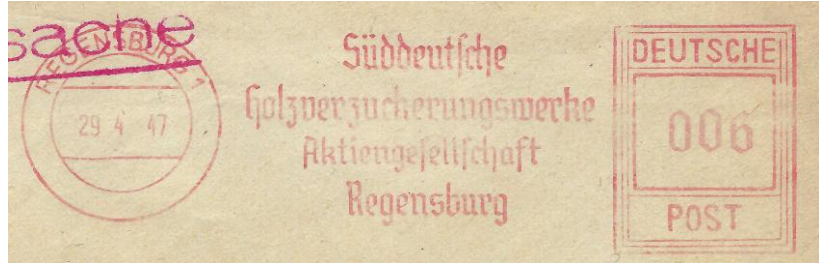 sache
REGENSBURG 1
29 4 47
Süddeutsche
Holzverzuckerungswerke
Aktiengesellschaft
Regensburg
DEUTSCHE
006
POST